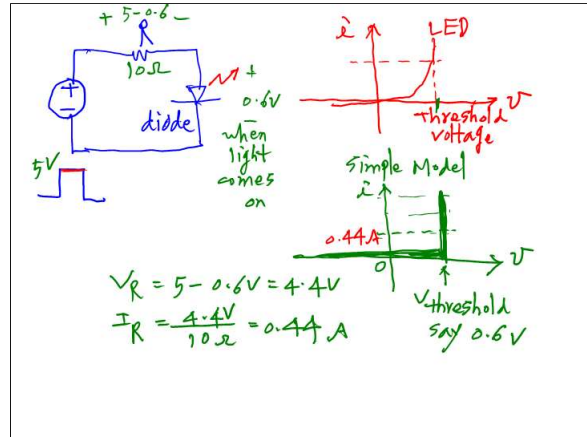 + 5-0.6 -
R
10Ω
+
-
diode
+
0.6V
-
when
light
comes
on
5V
i
LED
v
threshold
voltage
Simple Model
i
0.44A
0
v
Vthreshold
say 0.6V
VR = 5 - 0.6V = 4.4V
IR = 4.4V / 10Ω = 0.44 A